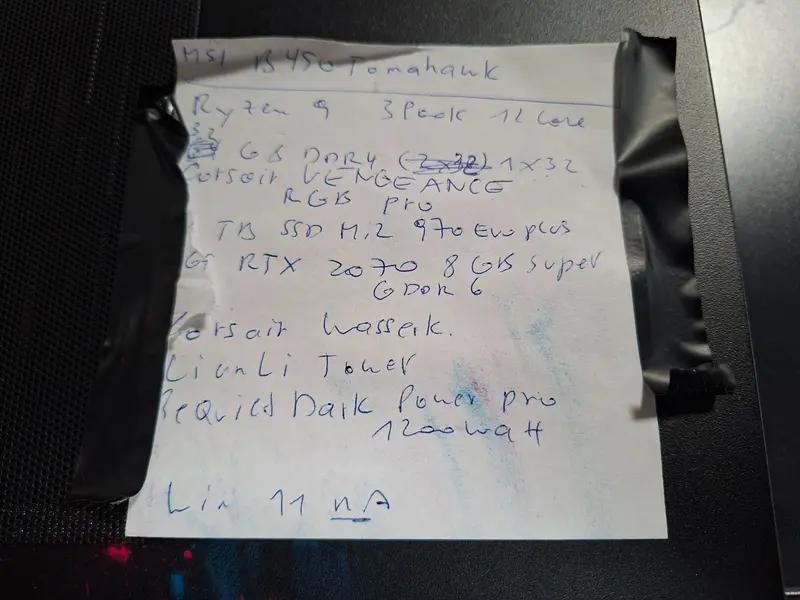 MSI B450 Tomahawk
Ryzen 9 3900k 12 Core
32 GB DDR4 1x32
Corsair VENGEANCE
RGB pro
TB SSD M.2 970 Evo plus
RTX 2070 8 GB Super
GDDR 6
Corsair Wasserk.
LianLi Tower
BeQuied Dark Power pro
1200 Watt
Win 11 nA